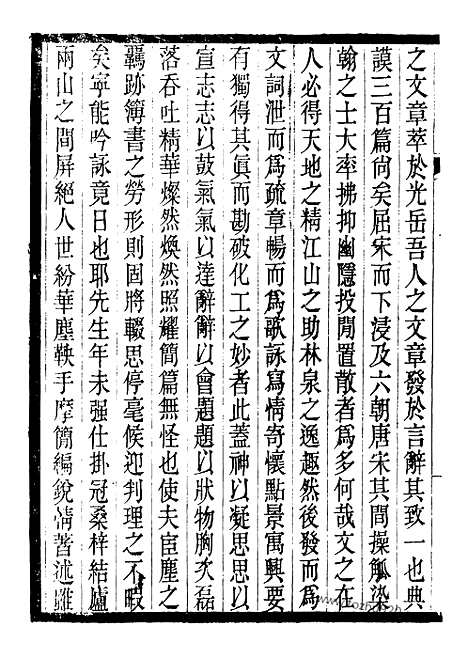 之文章萃於光岳吾人之文章發於言辭其致一也典
謨三百篇尚矣屈宋而下浸及六朝唐宋其間操觚染
翰之士大率拂抑幽隱投閒置散者爲多何哉文之在
人必得天地之精江山之助林泉之逸趣然後發而爲
文詞泄而爲疏章暢而爲歌詠寫情寄懷點景寓興要
有獨得其眞而勘破化工之妙者此蓋神以凝思思以
宣志志以鼓氣氣以達辭辭以會題題以狀物胸次磊
落吞吐精華燦然煥然照耀簡篇無怪也使夫宦塵之
羈跡簿書之勞形則固將輟思停毫候迎判理之不暇
矣寧能吟詠竟日也耶先生年未强仕掛冠桑梓結廬
兩山之間屏絕人世紛華塵鞅手摩簡編銳情著述雖